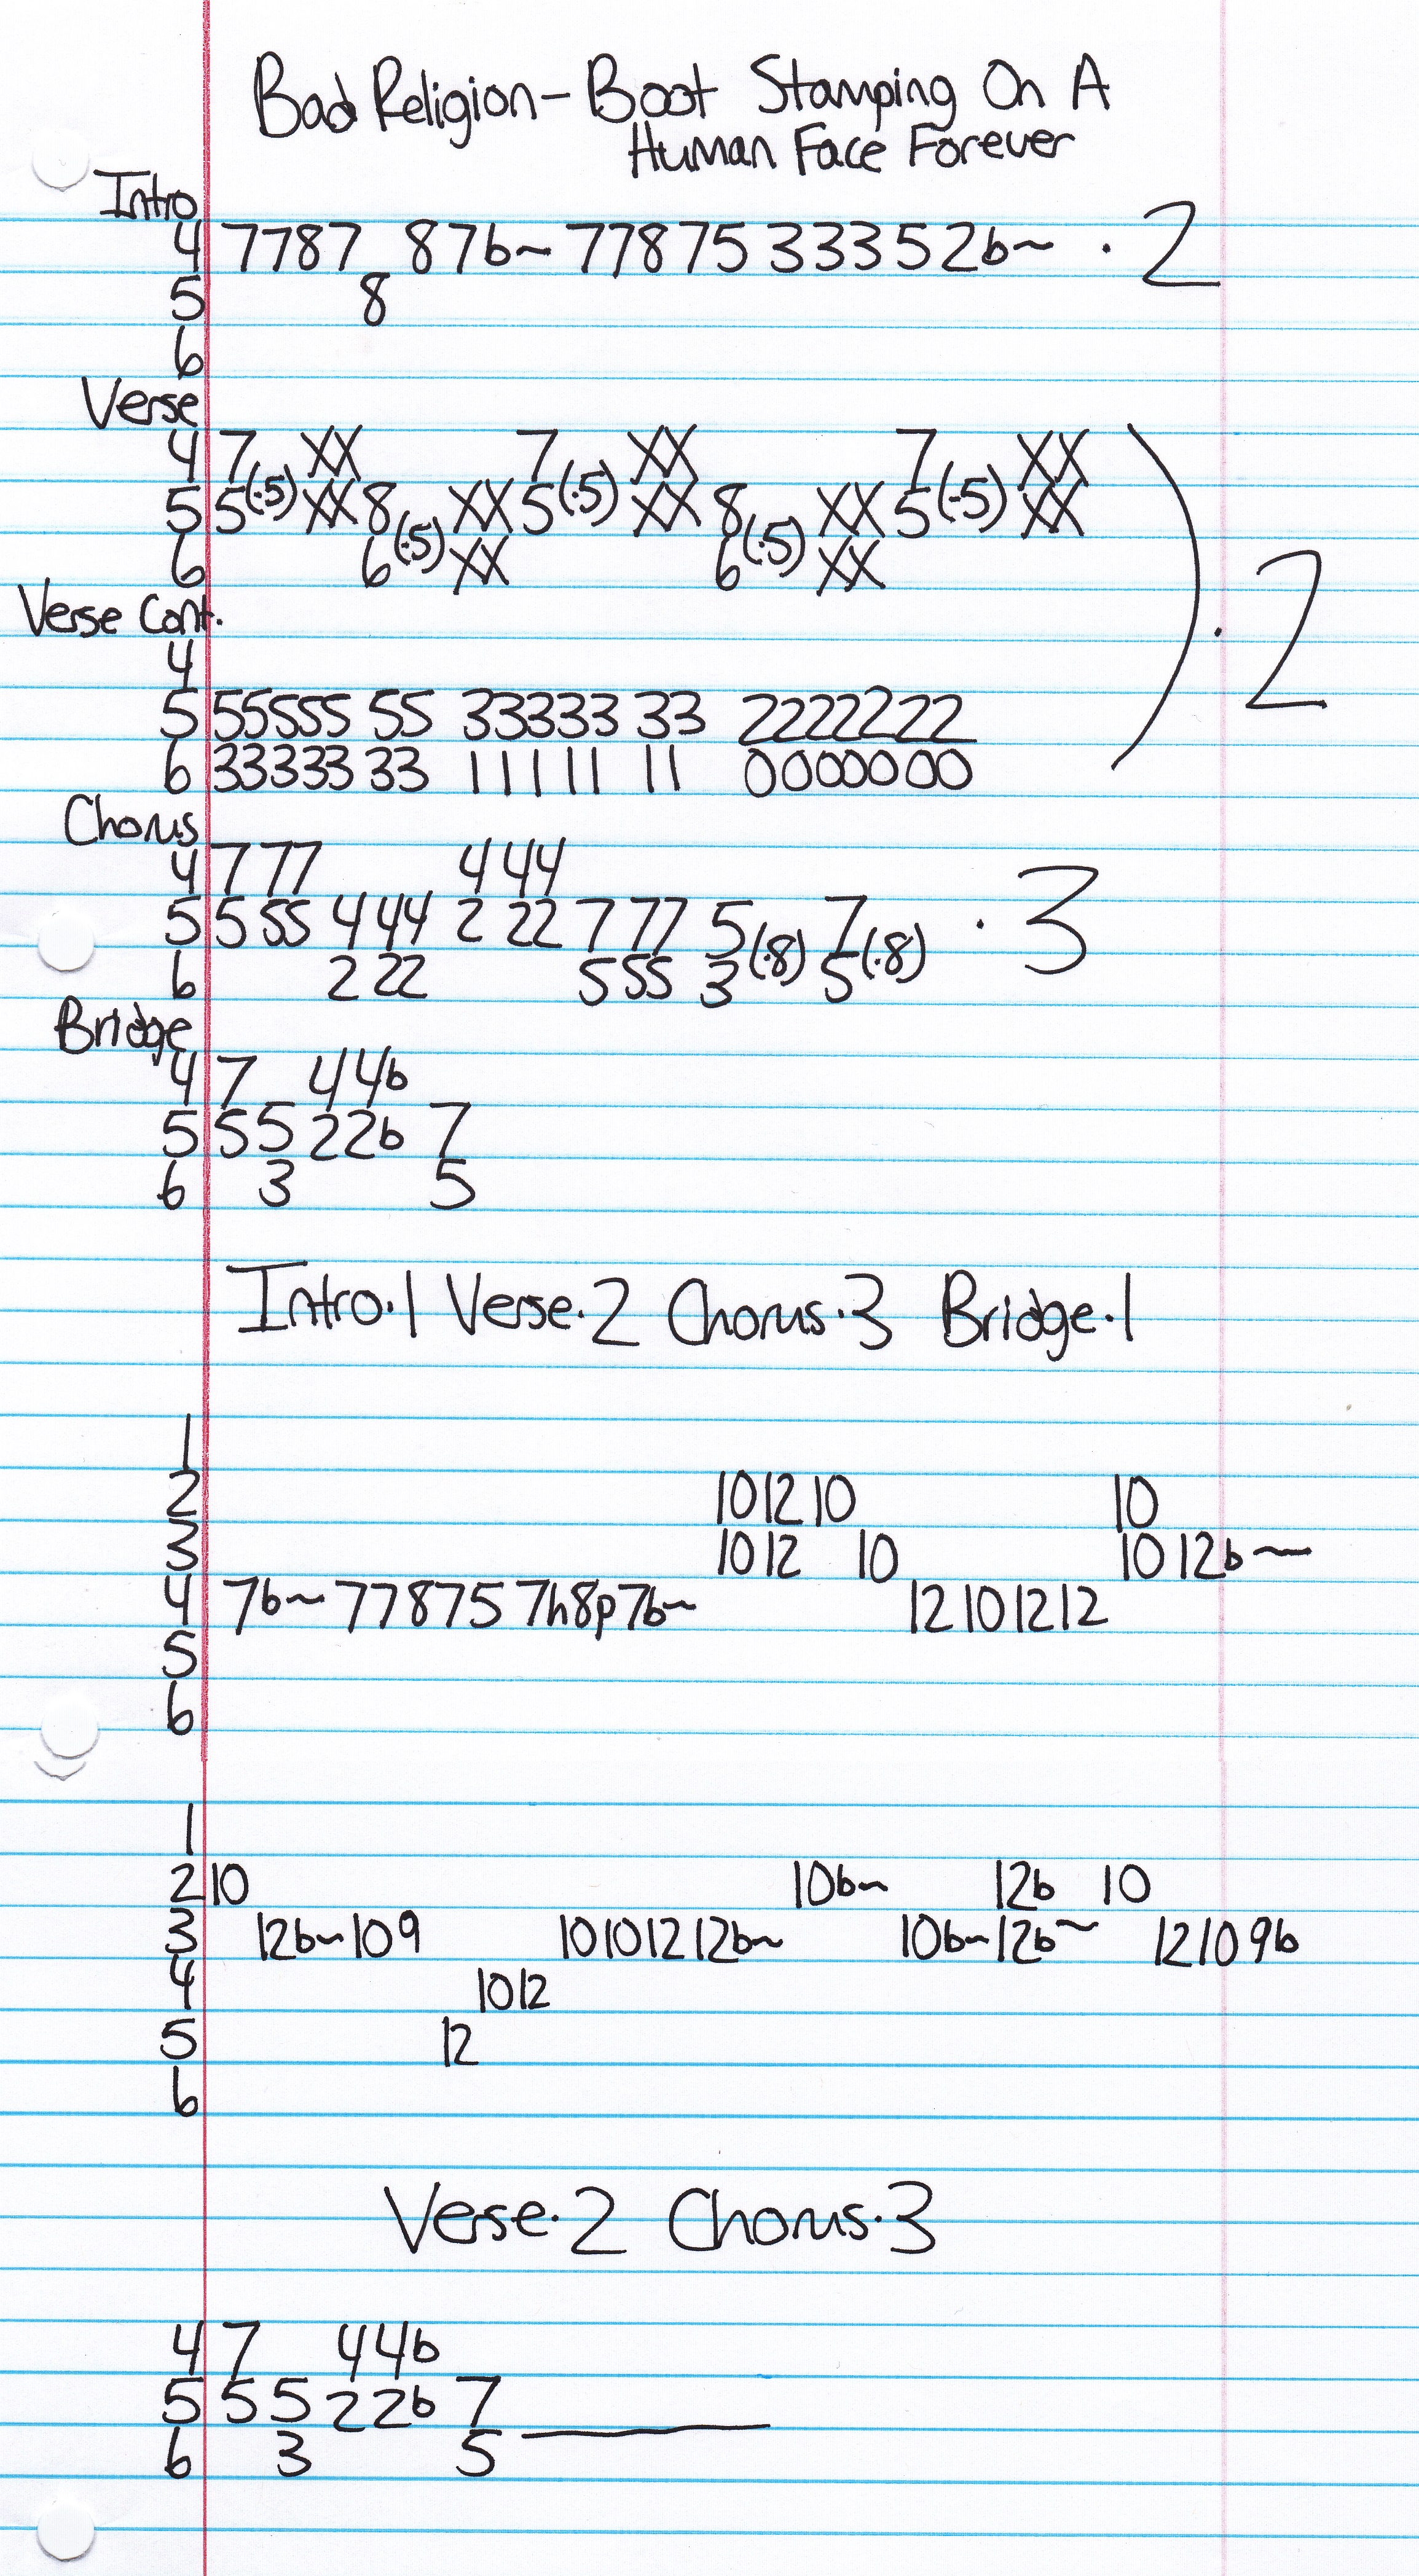 Bad Religion - Boot Stamping On A
Human Face Forever
Intro
4 7787 87b~ 77875 333 52b~ · 2
5 8
6
Verse
4 7 XX 7 XX 7 XX
5 5(.5) XX 8 XX 5(.5) XX 8 XX 5(.5) XX
6 6(.5) XX 6(.5) XX
) · 2
Verse Cont.
4
5 55555 55 33333 33 2222222
6 33333 33 11111 11 0000000
Chorus
4 7 77 4 44
5 5 55 4 44 2 22 7 77 5 7 · 3
6 2 22 5 55 3(.8) 5(.8)
Bridge
4 7 4 4b
5 5 5 2 2b 7
6 3 5
Intro·1 Verse·2 Chorus·3 Bridge·1
1
2 10 12 10 10
3 10 12 10 10 12b~
4 7b~ 77875 7h8p7b~ 12 10 12 12
5
6
1
2 10 10b~ 12b 10
3 12b~ 10 9 10 10 12 12b~ 10b~ 12b~ 12 10 9b
4 10 12
5 12
6
Verse·2 Chorus·3
4 7 4 4b
5 5 5 2 2b 7
6 3 5